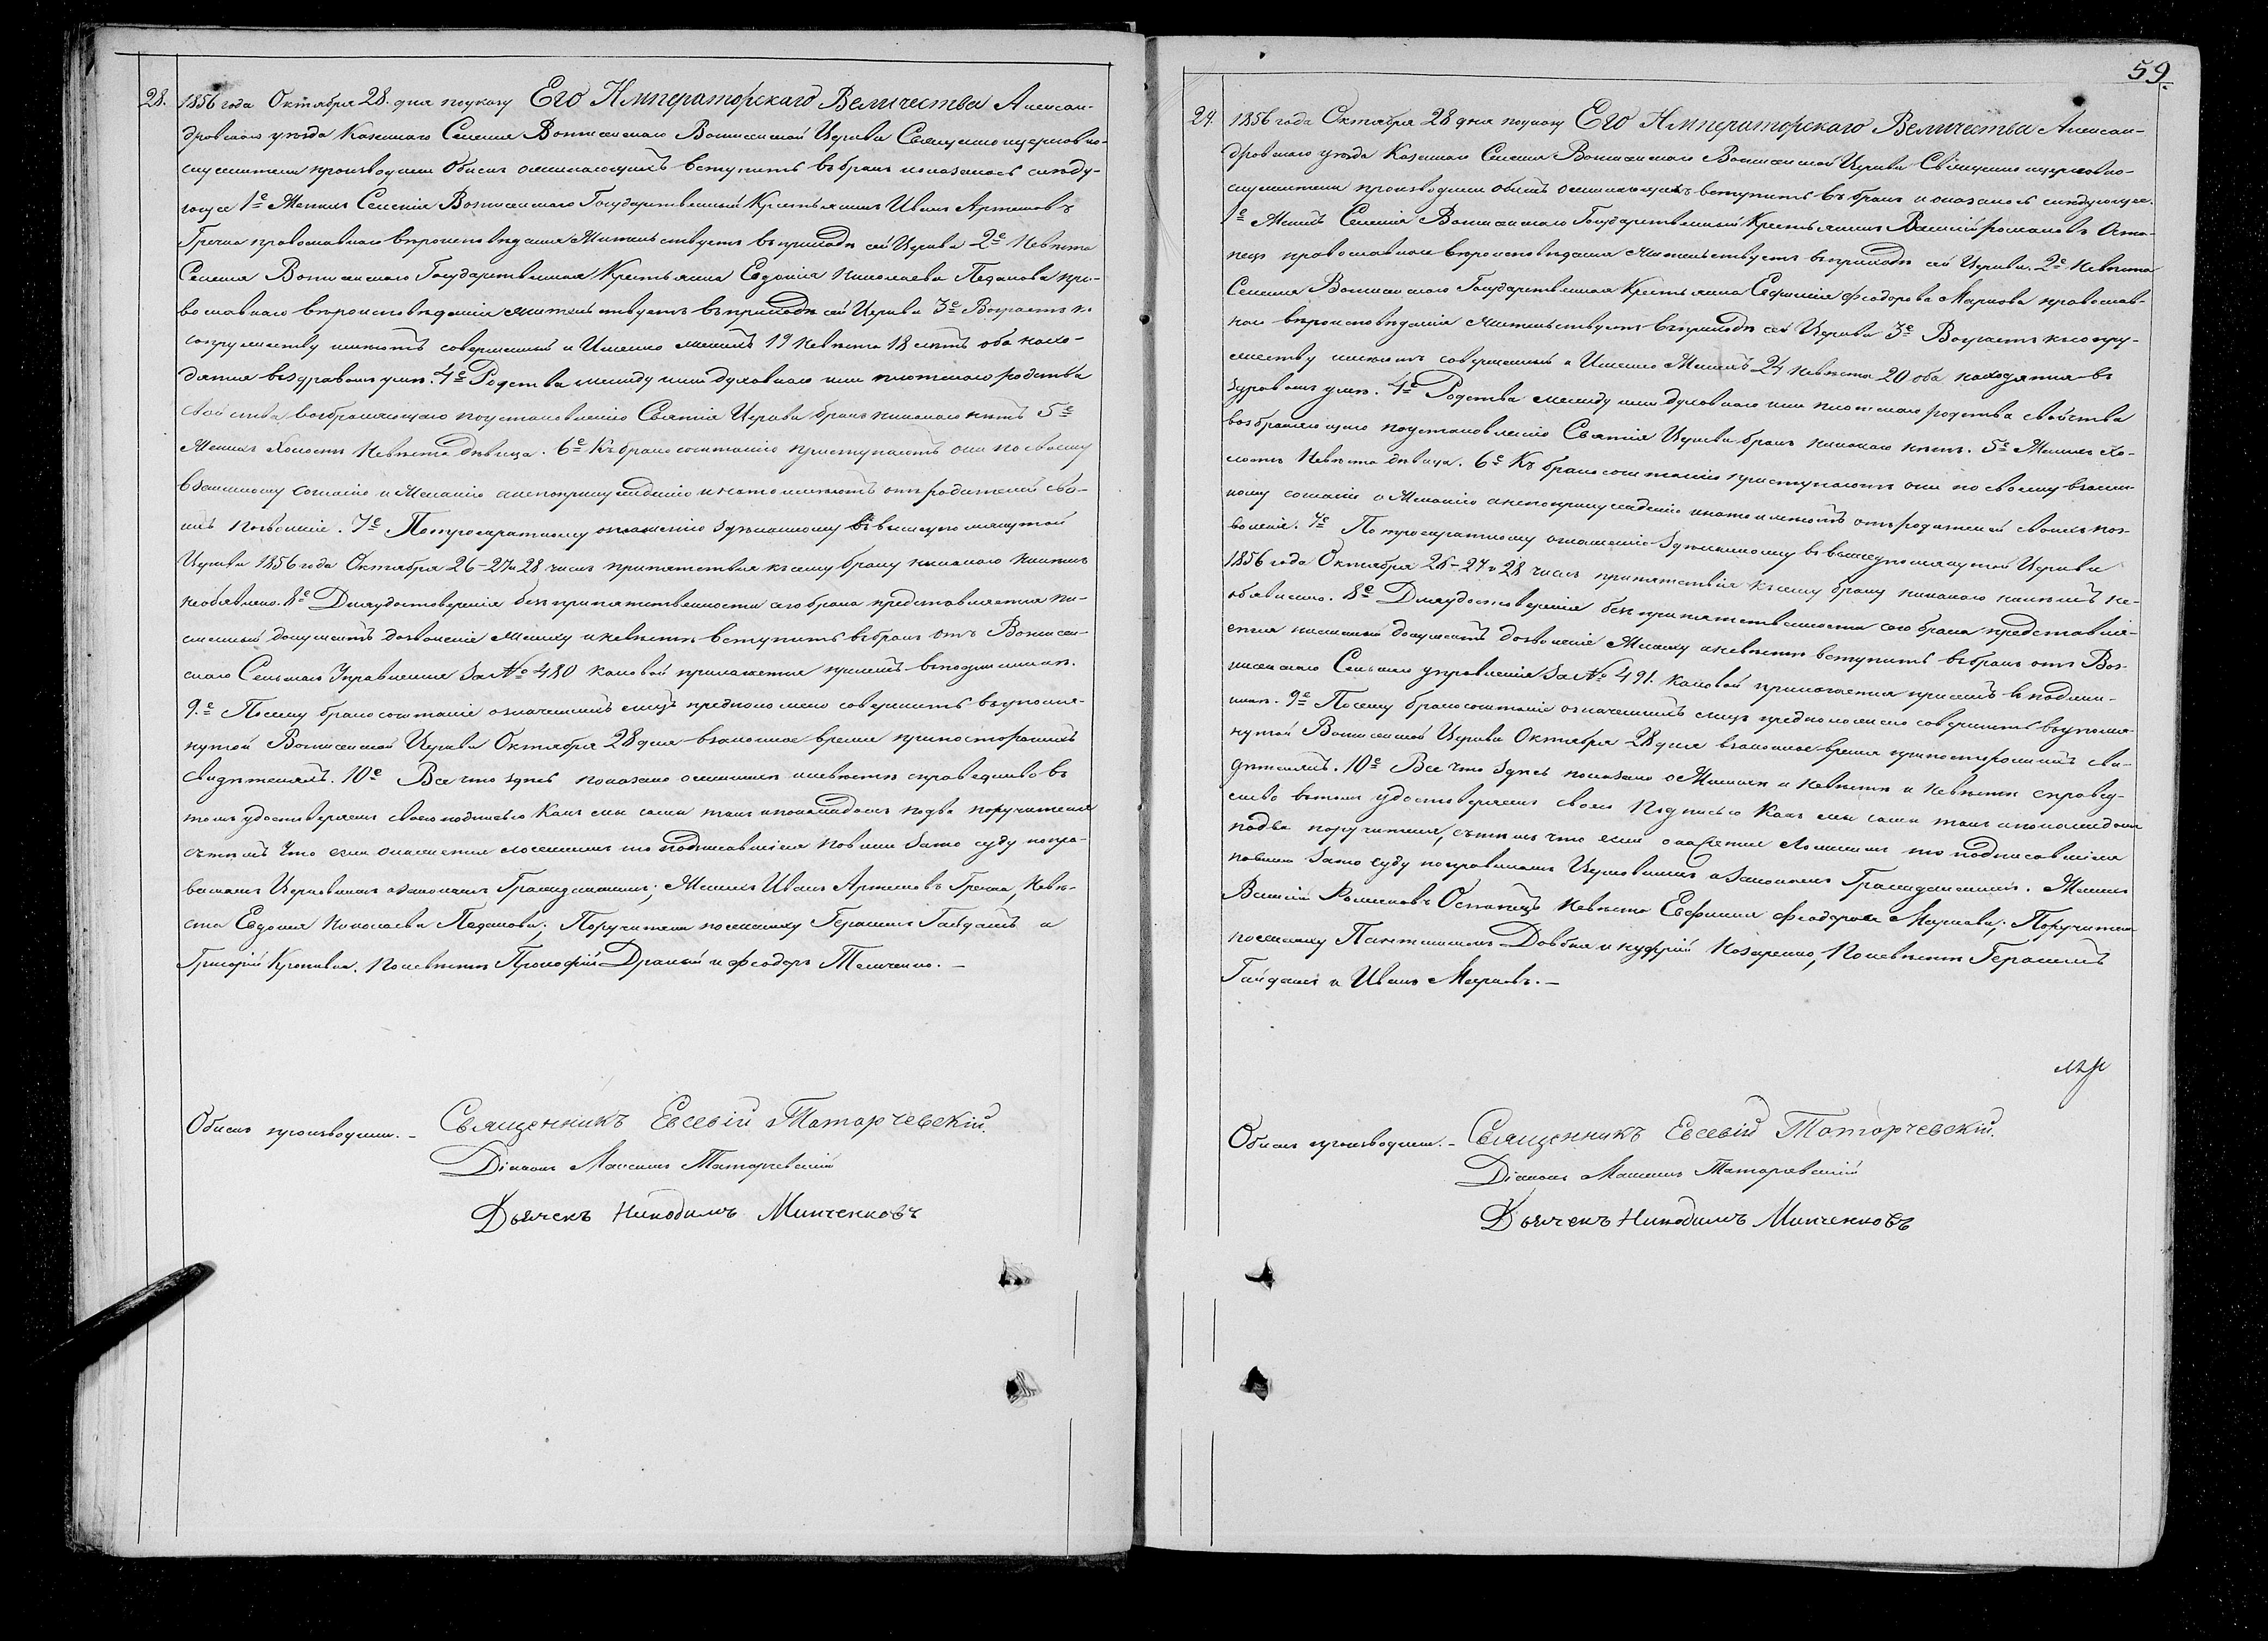 28. 1856 года Октября 28. дня по указу Его Императорскаго Величества Алексан-
дровскаго уезда Казеннаго Селения Вознесенскаго Вознесенской Церкви Священно и церковно-
служители производили обыск о желающихъ вступить въ бракъ и оказалось следу-
ющее 1е Жених Селения Вознесенскаго Государственный Крестьянинъ Иван Артемовъ
Гречка православнаго вероисповедания жительствуетъ въ приходе сей Церкви 2е Невеста
Селения Вознесенскаго Государственная Крестьянка Евдокия Николаева Педанова пра-
вославнаго вероисповедания жительствуетъ въ приходе сей Церкви 3е Возрастъ к
супружеству имеютъ совершенный и Именно женихъ 19 Невеста 18 летъ оба нахо-
дятся въ здравомъ уме. 4е Родства между ими духовнаго или плотскаго родства
свойства возбраняющаго по установлению Святыя Церкви бракъ никакого нетъ 5е
Женихъ Холостъ Невеста Девица. 6е Къ бракосочетанию приступаютъ они по своему
взаимному согласию и Желанию а не по принуждению и на то имеютъ отъ родителей сво-
ихъ позволение. 7е По троекратному оглашению зделанному въ вышеупомянутой
Церкви 1856 года Октября 26-27 и 28 чисел препятствия к сему браку никакого никемъ
не объявлено. 8е Для удостоверения безпрепятственности сего брака представляется пи-
сменный документъ дозволение Жениху и невесте вступить въ бракъ отъ Вознесен-
скаго Сельскаго Управления за № 480 каковой прилагается при семъ въ подлиннике.
9.е Посему бракосочетание означенныхъ лицъ предположено совершить въ упомя-
нутой Вознесенской Церкви Октября 28 дня въ законное время при посторонныхъ
свидетеляхъ. 10е Все что здесь показано о женихе и невесте справедливо въ
томъ удостоверяемъ своею подписью Какъ они сами такъ и по каждомъ по два поручителя
съ темъ что если окажется ложнымъ то подписавшиеся повинны за то суду по пра-
виламъ Церковнымъ и законамъ Гражданскимъ; Женихъ Иванъ Артемовъ Гречка, Неве-
ста Евдокия Николаева Педанова; Поручители по жениху Герасимъ Гайдашъ и
Григорий Кропивка. По невесте Прокофий Драный и Феодоръ Темченко. —
Обыскъ производили. – Священникъ Евсевій Татарчевскій.
Діаконъ Максимъ Татарчевскій
Дьячекъ Никодимъ Минченковъ
59
24. 1856 года Октября 28 дня по указу Его Императорскаго Величества Алексан-
дровскаго уезда Казеннаго Селения Вознесенскаго Вознесенской Церкви Священно и церковно-
служители производили обыскъ о желающихъ вступить въ бракъ и оказалось следующее.
1е Женихъ Селения Вознесенскаго Государственный Крестьянинъ Василій Романовъ Оста-
пецъ православнаго вероисповедания жительствуетъ въ приходе сей Церкви. 2е Невеста
Селения Вознесенскаго Государственная Крестьянка Евфимия Феодорова Маркова православ-
наго вероисповедания жительствуетъ въ приходе сей Церкви 3е Возрастъ к супру-
жеству имеютъ совершенный и Именно Женихъ 24 Невеста 20 оба находятся въ
здравомъ уме. 4е Родства между ими духовнаго или плотскаго родства свойства
возбраняющаго по установлению Святыя Церкви бракъ никакого нетъ. 5е Женихъ Хо-
лостъ Невеста девица. 6е Къ бракосочетанию приступаютъ они по своему взаим-
ному согласию и Желанию а не по принуждению и на то имеютъ отъ родителей своихъ поз-
воление. 7е По троекратному оглашению зделанному въ вышеупомянутой Церкви
1856 года Октября 26-27 и 28 чисел препятствия къ сему браку никакого никемъ не-
объявлено. 8е Для удостоверения безпрепятственности сего брака представля-
ется письменный документъ дозволение Жениху и невесте вступить въ бракъ отъ Воз-
несенскаго Сельскаго управления за № 491. каковой прилагается при семъ въ подлин-
нике. 9е Посему бракосочетание означенныхъ лицъ предположено совершить въ упомя-
нутой Вознесенской Церкви Октября 28 дня въ законное время при постороннихъ сви-
детеляхъ. 10е Все что здесь показано о Женихе и невесте и Невесте справед-
ливо въ томъ удостоверяемъ своею Подписью Какъ они сами такъ и по каждомъ
по два поручителя, съ темъ что если окажется Ложнымъ то подписавшиеся
повинны за то суду по правиламъ Церковнымъ и Законамъ Гражданскимъ. Женихъ
Василій Романовъ Остапецъ Невеста Евфимия Феодорова Маркова; Поручители
по жениху Пантелимонъ Довбня и нуфрий Козаренко, По невесте Герасимъ
Гайдашъ и Иванъ Марковъ. —
Обыскъ производили. – Священникъ Евсевій Татарчевскій.
Діаконъ Максимъ Татарчевскій
Дьячекъ Никодимъ Минченковъ